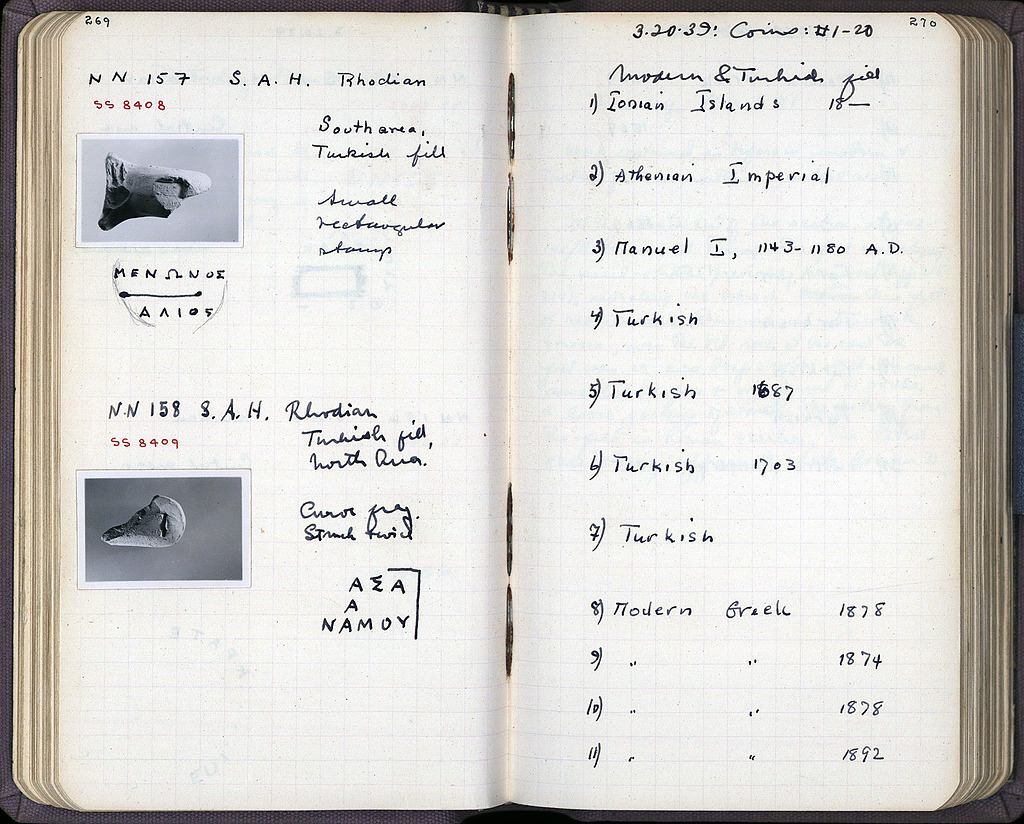 269
NN 157 S.A.H. Rhodian
SS 8408
South area,
Turkish fill
Small
rectangular
stamp
ΜΕΝΩΝΟΣ
ΑΛΙΟΣ
NN 158 S.A.H. Rhodian
SS 8409
Turkish fill,
North Area.
Curve frag.
Struck twice
ΑΣΑ
Α
ΝΑΜΟΥ
270
3.20.39: Coins: #1-20
Modern & Turkish fill
1) Ionian Islands 18—
2) Athenian Imperial
3) Manuel I, 1143-1180 A.D.
4) Turkish
5) Turkish 1687
6) Turkish 1703
7) Turkish
8) Modern Greek 1878
9) " " 1874
10) " " 1878
11) " " 1892